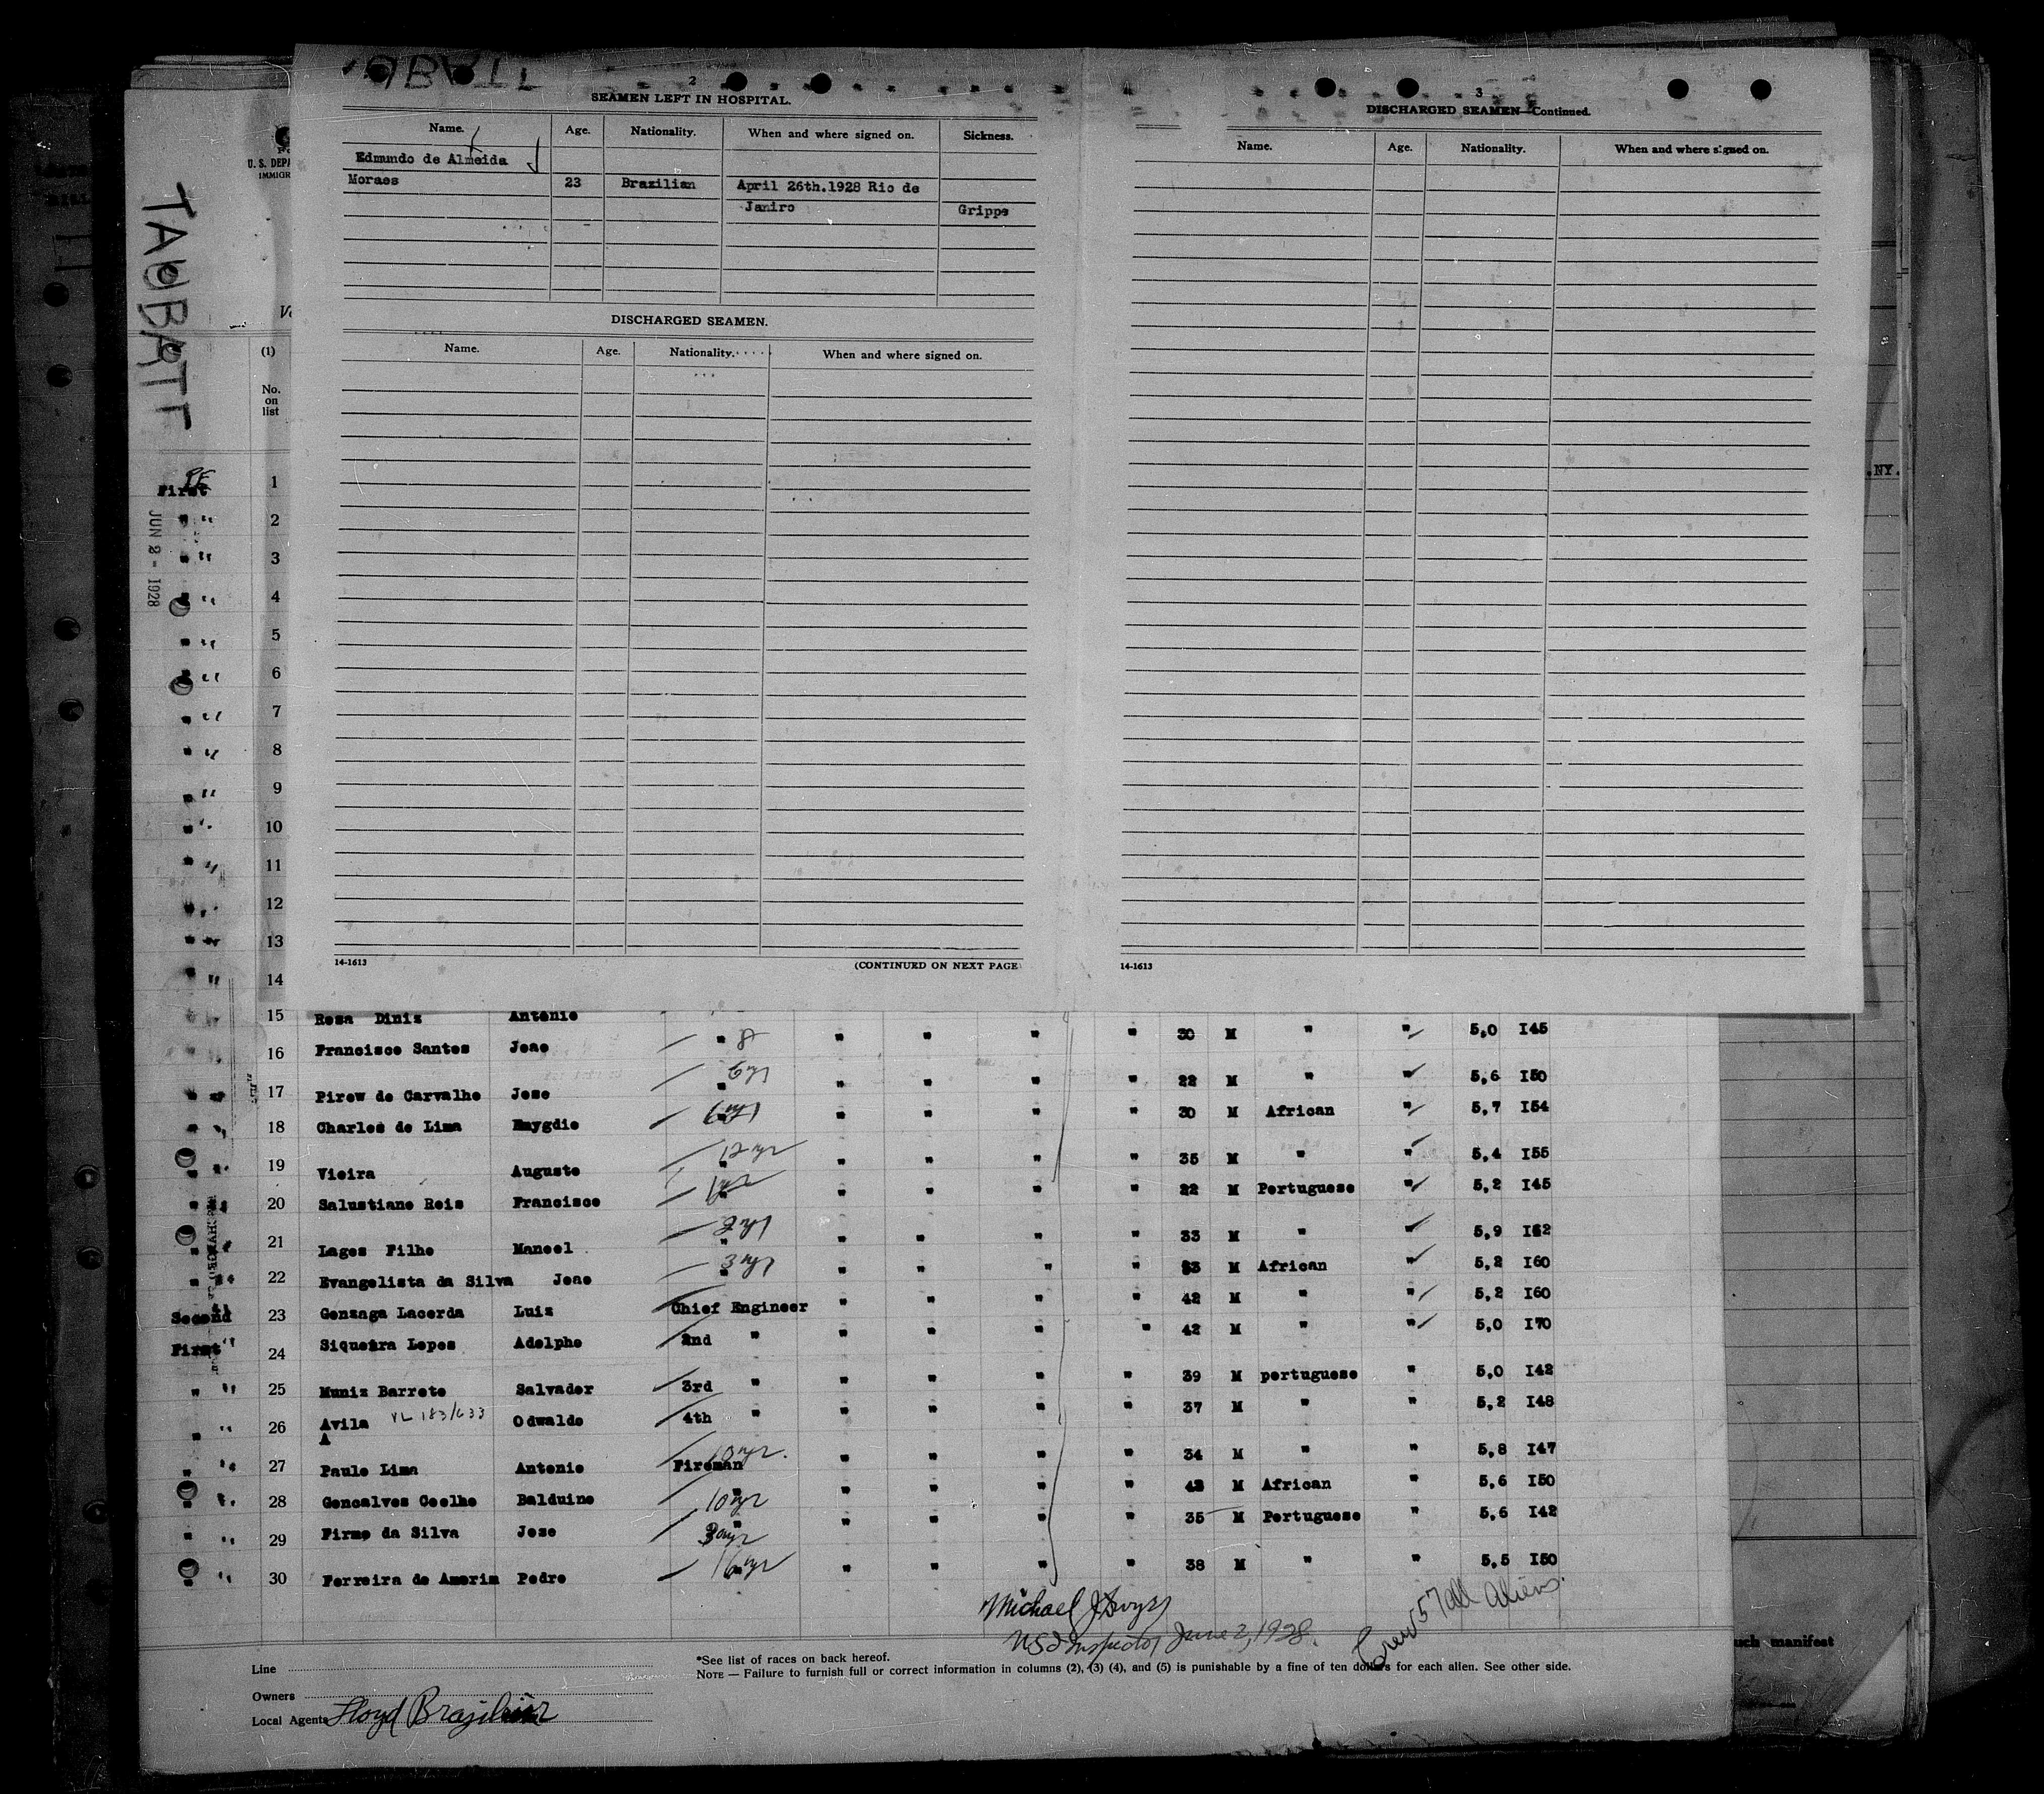 2
SEAMEN LEFT IN HOSPITAL.
Name. Age. Nationality. When and where signed on. Sickness.
Edmundo de Almeida
Moraes 23 Brazilian April 26th.1928 Rio de
Janiro Grippe
DISCHARGED SEAMEN.
Name. Age. Nationality. When and where signed on.
14-1613 (CONTINUED ON NEXT PAGE
3
DISCHARGED SEAMEN—Continued.
Name. Age. Nationality. When and where signed on.
14-1613
U. S. DEPA
IMMIGR
(1)
No.
on
list
First 1
JUN 2 - 1928
2
3
4
5
6
7
8
9
10
11
12
13
14
15 Rosa Diniz Antonio
16 Francisco Santos Joao " " " " " 30 M " " 5,0 I45
17 Pirew de Carvalho Jose " " " " " 22 M " " 5,6 I50
18 Charles de Lima Emygdio " " " " 30 M African " 5,7 I54
19 Vieira Augusto 12 yr " " " " " 35 M " " 5,4 I55
20 Salustiano Reis Francisco " " " " " 22 M Portuguese " 5,2 I45
21 Lages Filho Manoel " " " " " 33 M " " 5,9 I62
22 Evangelista da Silva Joao 3 yr " " " " " 53 M African " 5,2 I60
Second 23 Gonzaga Lacerda Luiz Chief Engineer " " " " 42 M " " 5,2 I60
First 24 Siqueira Lopes Adolpho 2nd " " " " " 42 M " " 5,0 I70
25 Muniz Barreto Salvador 3rd " " " " " 39 M portuguese " 5,0 I42
26 Avila VL 183/633 Odwaldo 4th " " " " " 37 M " " 5,2 I48
A
27 Paulo Lima Antonio Fireman 10 yr. " " " " 34 M " " 5,8 I47
28 Goncalves Coelho Balduino " 10 yr " " " " 43 M African " 5,6 I50
29 Firmo da Silva Jose " " " " " 35 M Portuguese " 5,6 I42
30 Ferreira de Amorim Pedro " 16 yr " " " " 38 M " " 5,5 I50
Michael J
US I Inspector June 2, 1928.
Crew 57 all Aliens.
*See list of races on back hereof.
NOTE — Failure to furnish full or correct information in columns (2), (3) (4), and (5) is punishable by a fine of ten dollars for each alien. See other side.
Line
Owners
Local Agents Lloyd Brazileiro
.NY.
uch manifest